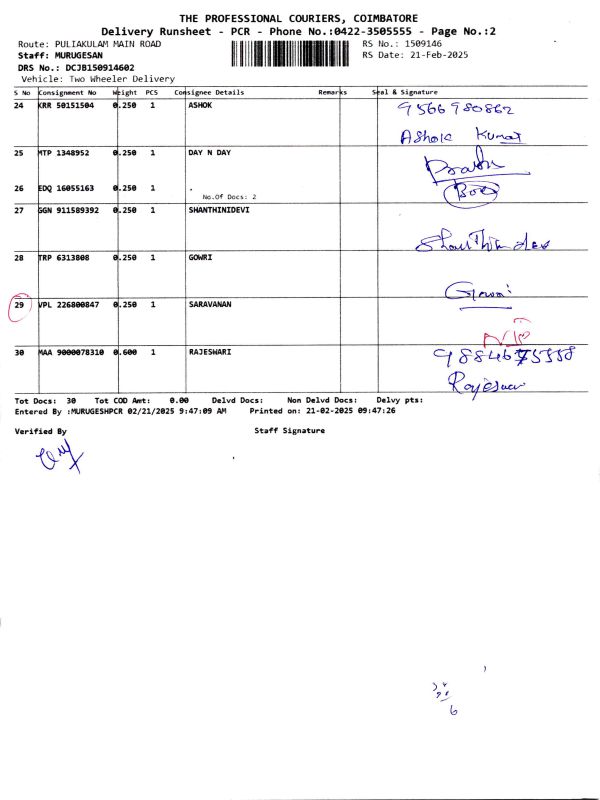 THE PROFESSIONAL COURIERS, COIMBATORE
Delivery Runsheet - PCR - Phone No.:0422-3505555 - Page No.:2
Route: PULIAKULAM MAIN ROAD RS No.: 1509146
Staff: MURUGESAN RS Date: 21-Feb-2025
DRS No.: DCJB150914602
Vehicle: Two Wheeler Delivery
S No Consignment No Weight PCS Consignee Details Remarks Seal & Signature
24 KRR 50151504 0.250 1 ASHOK 9566980862
Ashok Kumar
25 MTP 1348952 0.250 1 DAY N DAY
26 EDQ 16055163 0.250 1 .
No.Of Docs: 2
27 GGN 911589392 0.250 1 SHANTHINIDEVI
28 TRP 6313808 0.250 1 GOWRI
29 VPL 226800847 0.250 1 SARAVANAN
30 MAA 9000078310 0.600 1 RAJESWARI
Tot Docs: 30 Tot COD Amt: 0.00 Delvd Docs: Non Delvd Docs: Delvy pts:
Entered By :MURUGESHPCR 02/21/2025 9:47:09 AM Printed on: 21-02-2025 09:47:26
Verified By Staff Signature